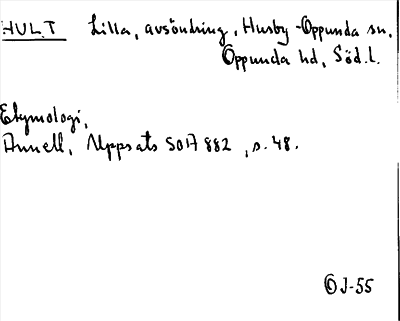 HULT Lilla, avsöndring, Husby-Oppunda sn,
Oppunda hd, Södl.
Etymologi,
Annell, Uppsats SOA 882, s. 48.
OJ-55